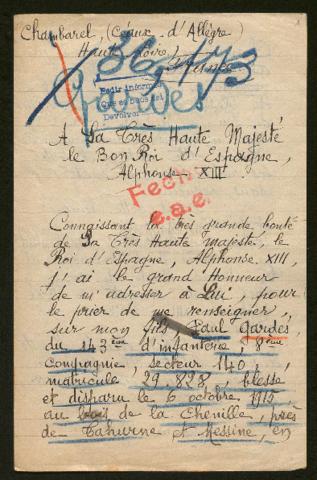 Chambarel, (Céaux-d'Allègre)
Haute Loire)
France
36 1/73
Gardès
Pedir informe
Devolver
A Sa Très Haute Majesté
le Bon Roi d'Espagne,
Alphonse XIII
Fecha
s.a.e.
Connaissant la très grande bonté
de Sa Très Haute majesté, le
Roi d'Espagne, Alphonse XIII,
j'ai le grand Honneur
de m'adresser à Lui, pour
le prier de me renseigner,
sur mon fils Paul Gardès,
du 143ème d'infanterie, 8ème
compagnie, secteur 140,
matricule 29.828, blessé
et disparu le 6 octobre 1915
au bois de la Chenille, près
de Tahurne et Messine, en